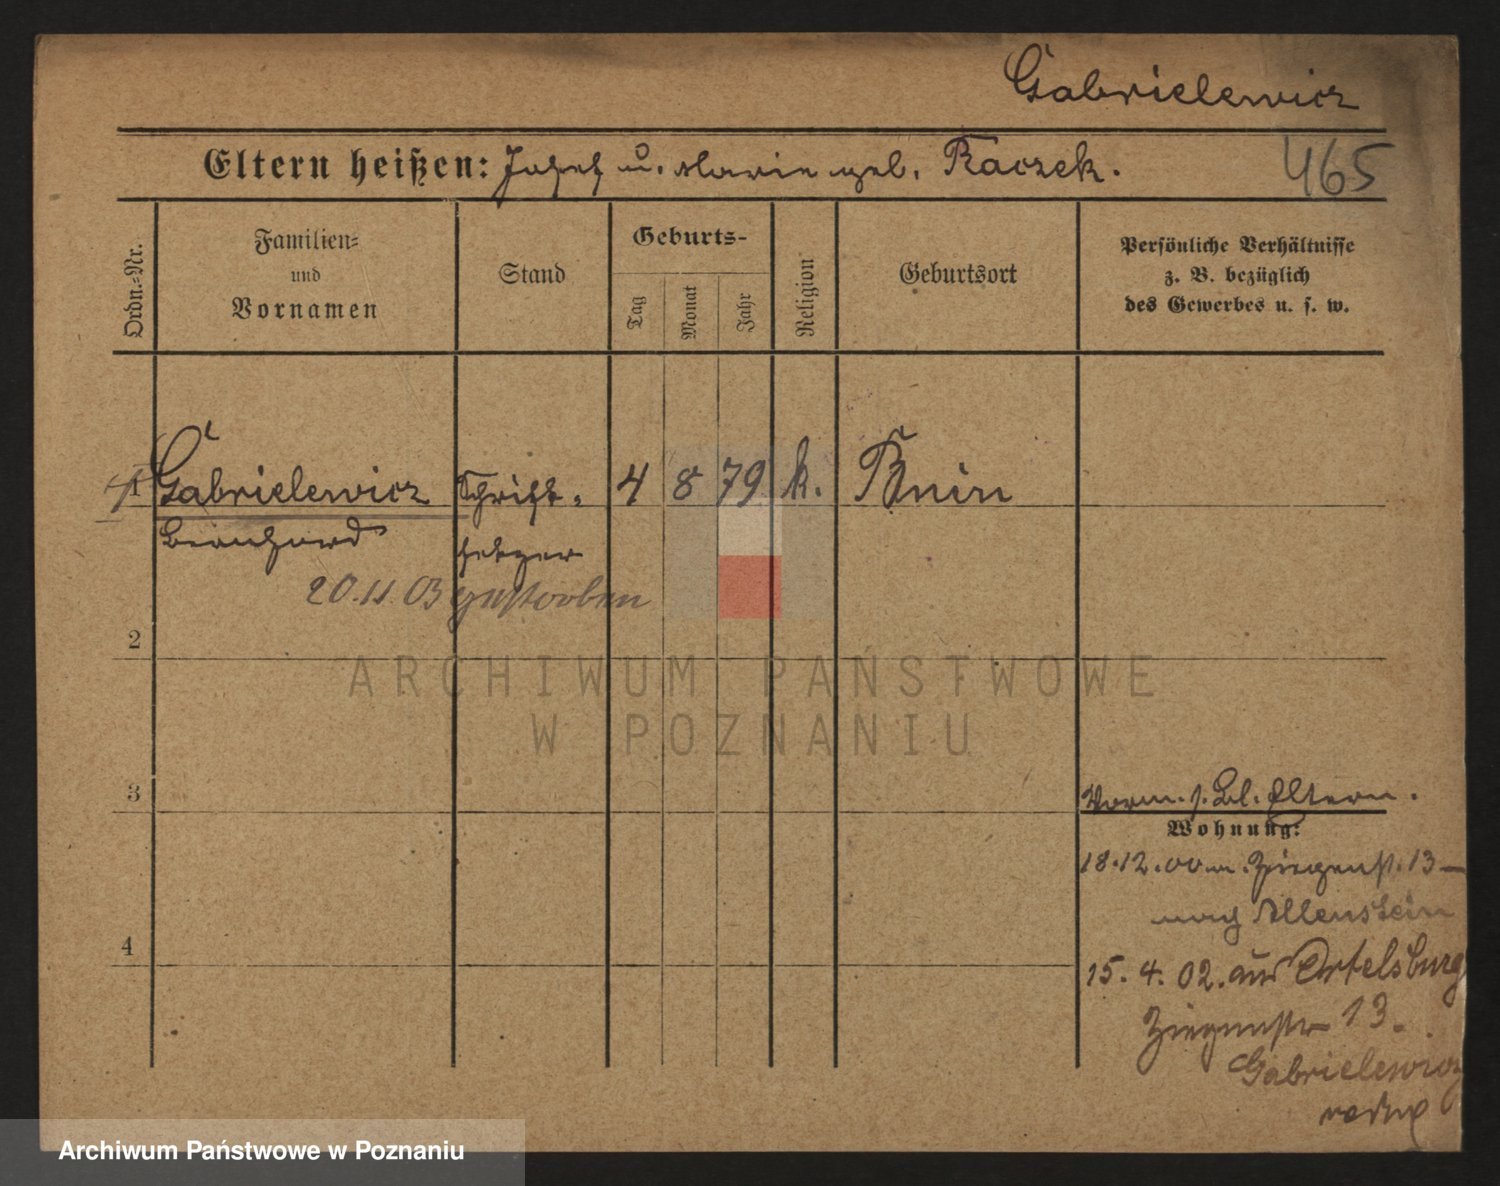 Gabrielewicz
Eltern heißen: Josef u. Marie geb. Raczek.
465
Ordn.-Nr.
Familien-
und
Vornamen
Stand
Geburts-
Tag
Monat
Jahr
Religion
Geburtsort
Persönliche Verhältnisse
z. B. bezüglich
des Gewerbes u. s. w.
1 Gabrielewicz Schrift- 4 8 79 k. Bnin
Bernhard setzer
20.11.03 gestorben
2
3
Vorm. s. Bl. Eltern.
Wohnung:
18.12.00 v. Ziegenst. 13 –
nach Allenstein
4
15. 4. 02. aus Ortelsburg
Ziegenstr 13.
Gabrielewicz
ARCHIWUM PAŃSTWOWE
W POZNANIU
Archiwum Państwowe w Poznaniu